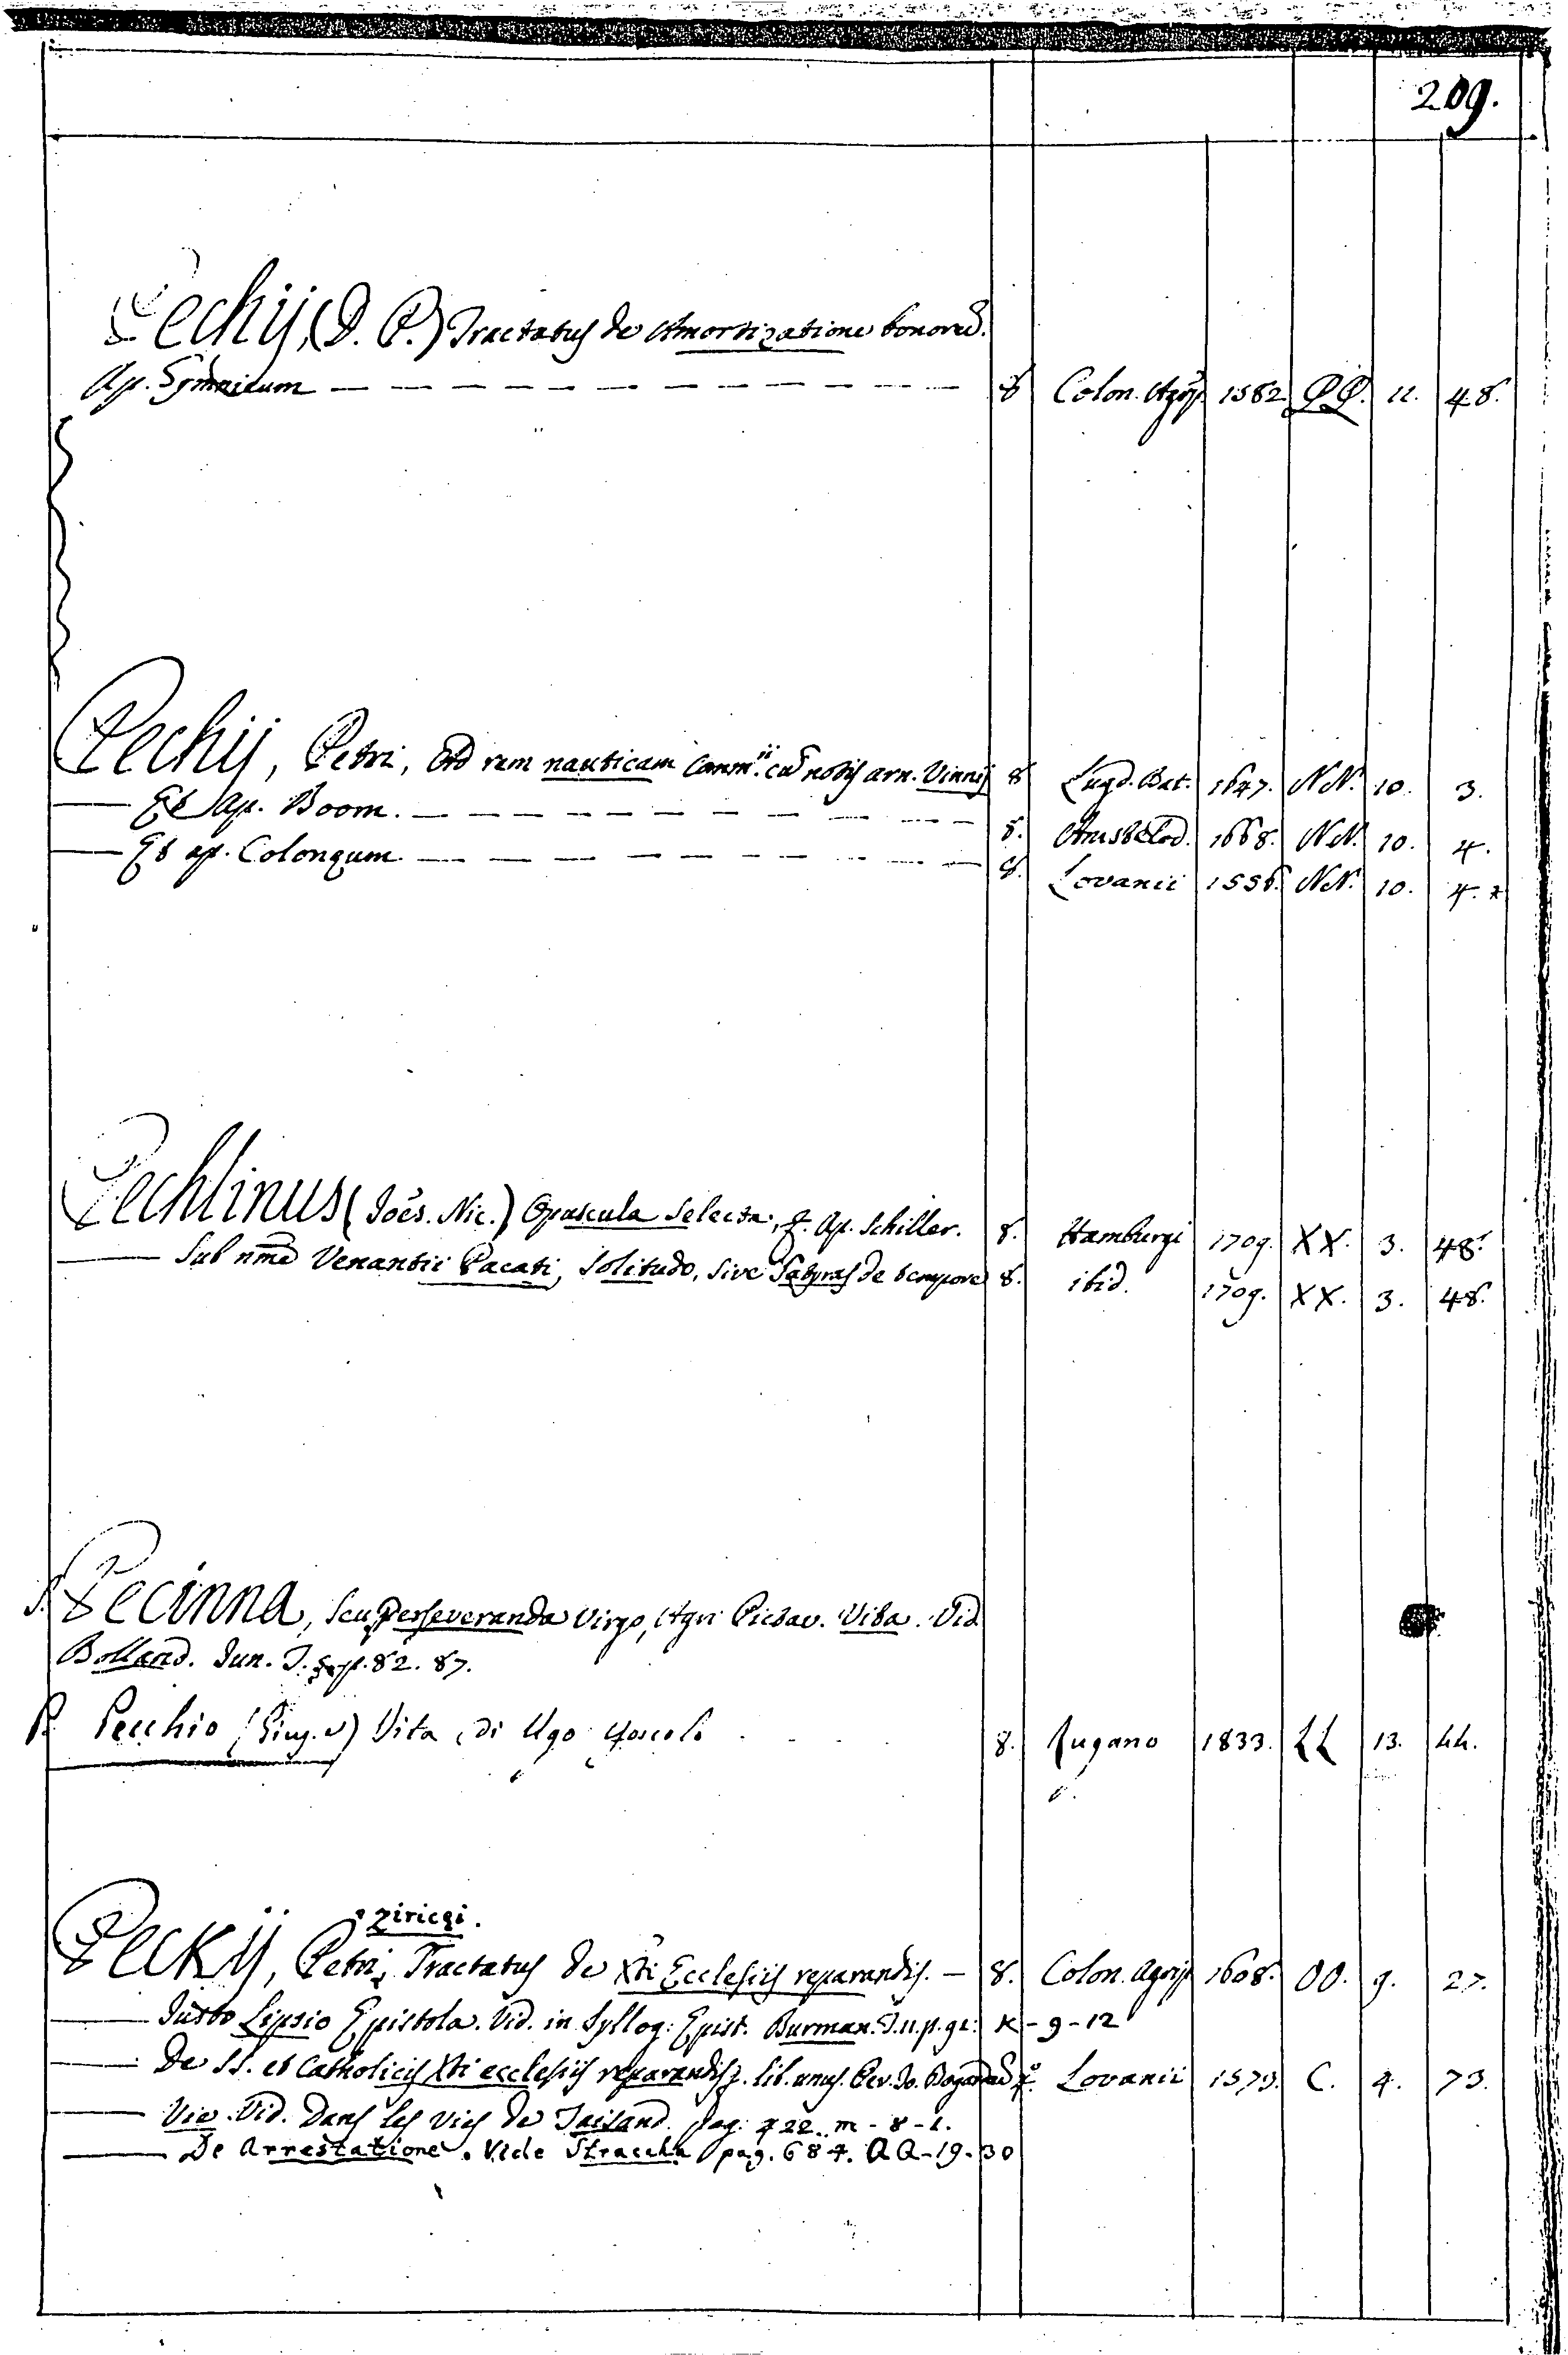 209.
Pechij, (D. P.) Tractatus de Amortizatione bonorū.
Ap. Gymnicum — — — — — — — — — — — 8 Colon. Agrip 1582. PP. 11. 48.
Pechij, Petri, Ad rem nauticam Comm.ii cū notis arn. Vinnij 8 Lugd. Bat. 1647. NN. 10. 3.
—— Et Ap. Boom. — — — — — — — — — 8. Amstelod. 1668. NN. 10. 4.
—— Et ap. Colonæum — — — — — — — — — 8. Lovanii 1556. NN. 10. 4. *
Pechlinus (Joēs. Nic.) Opuscula Selecta, Ap. Schiller. 8. Hamburgi 1709. XX. 3. 48.
—— Sub nmē Venantii Pacati, Solitudo, sive Satyras de tempore 8. ibid. 1709. XX. 3. 48.
S. Pecinna, seu Perseveranda Virgo, Agri Pictav. Vita. Vid.
Bolland. Jun. T. p. 82. 87.
P. Pecchio (Giu. e) Vita di Ugo Foscolo 8. Lugano 1833. LL 13. 44.
Ziricæi.
Peckij, Petri, Tractatus de Xti Ecclesiis reparandis. — 8. Colon. Agrip 1608. OO. 9. 27.
—— Justo Lipsio Epistola. Vid. in Syllog: Epist. Burman. T. 11. p. 91: K - 9 - 12
—— De SS. et Catholicis Xti ecclesiis reparandis. lib. unus. Per. Jo. Bogardū Lovanii 1573. C. 4. 73.
—— Vie. Vid. Dans les vies de Taisand. pag: 422. m - 8 - 1.
—— De Arrestatione. Vide Straccha pag. 684. QQ - 19 - 30